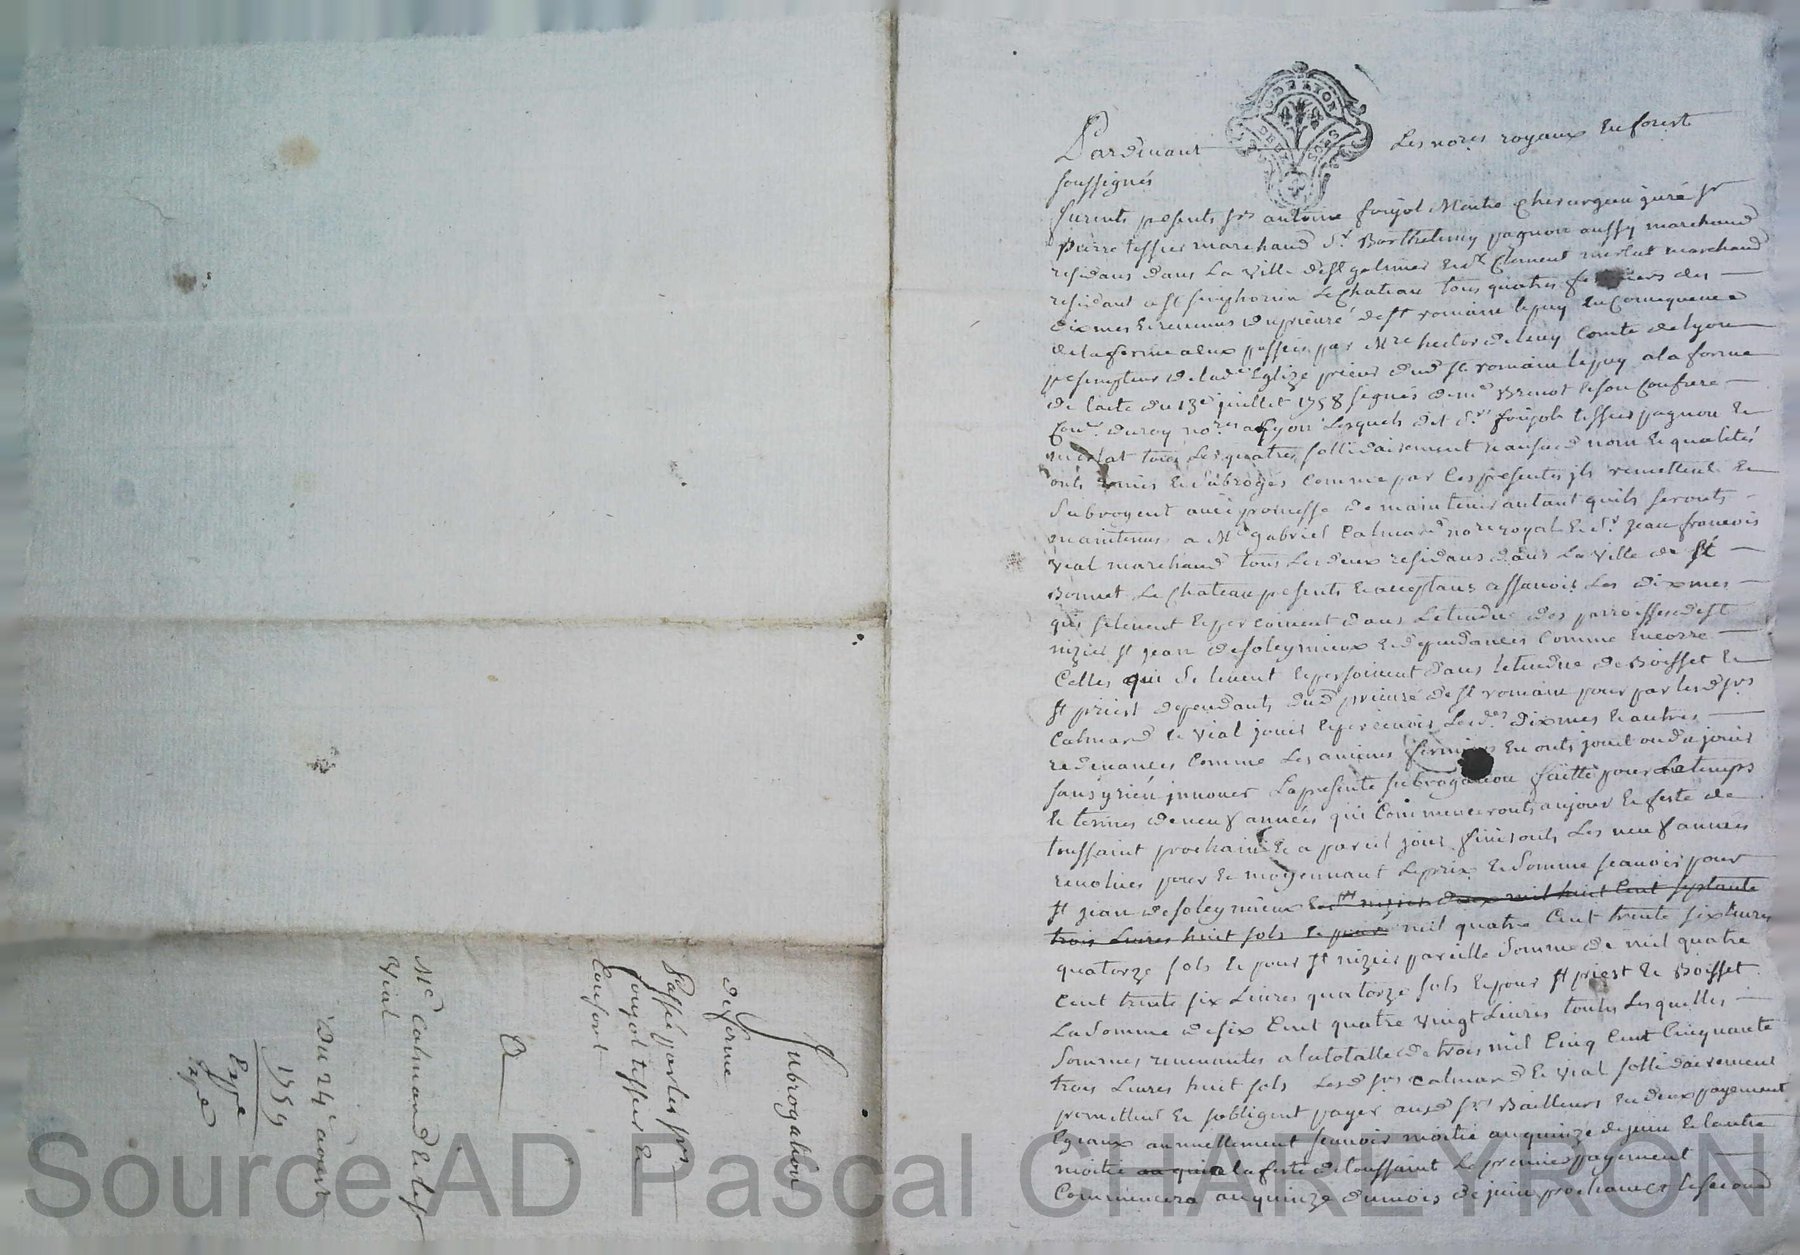 Pardevant Les nores royaux En forest
soussignés
furents presents srs antoine foujol Maitre Chirurgien juré sr
pierre tessier marchand sr Barthelemy pagnon aussy marchand
residans dans La ville de st galmier Et sr Clement merlat marchand
residant a st simphorien Le Chateau tous quatres fermiers des
dixmes Et revenus du prieuré de st romain lepuy En Consequence
de la ferme a Eux passée par Mre hector de levy Comte de lyon
de lade Eglize prieur dud st romain lepuy a la forme
de lacte du 13e juillet 1758 signés de me Brenot Et son Confrere
Conrs du roy nores a lyon Lesquels dit srs foujols tessier pagnon Et
merlat tous Les quatres sollidairement Et ausd nom Et qualités
onts remis Et subrogés Comme par Ces presentes jls remettent Et
subrogent avec promesse de maintenir autant quils seronts
maintenus a Me gabriel Calmard nore royal Et sr jean françois
vial marchand tous Les deux residans dans La ville de st
Bonnet Le Chateau presents Et acceptans assavoir Les dixmes
qui selevent Et percoivent dans Letendue des parroisses de st
nizier st jean de soleymieux Et dependances Comme Encorre
Celles qui se levent Et persoivent dans letendue de Boisset Et
st priest dependants dud prieuré de st romain pour par lesd srs
Calmard Et vial jouir Et percevoir Lesdes dixmes Et autres
redevances Comme Les anciens fermiers En onts jouit ou du jouir
sans y rien jnnover La presente subrogation faitte pour Le temps
Et termes de neuf années qui Commenceronts au jour Et feste de
toussaint prochain Et a pareil jour finironts Les neuf années
revolues pour Et moyennant Le prix Et somme scavoir pour
st jean de soleymieux Et st nizier deux mil huit Cent septante
trois Livres huit sols Et pour mil quatre Cent trente six livres
quatorze sols Et pour st nizier pareille somme de mil quatre
Cent trente six Livres quatorze sols Et pour st priest Et Boisset
La somme de six Cent quatre vingt Livres toutes Lesquelles
sommes revenantes a la totalle de trois mil Cinq Cent Cinquante
trois Livres huit sols Lesd srs Calmard Et vial sollidairement
promettent Et sobligent payer ausd srs Bailleurs En deux payement
Egeaux annuellement scavoir moitié au quinze de juin Et lautre
moitié au quin a la feste de toussaint Le premier payement
Commencera au quinze du mois de juin prochain Et le second
Subrogation
de ferme
Passée par les srs
foujol tessier Et
Consort
A
Me Calmard Et le sr
Vial
Du 24e aoust
1759
Exp.e
Source AD Pascal CHAREYRON